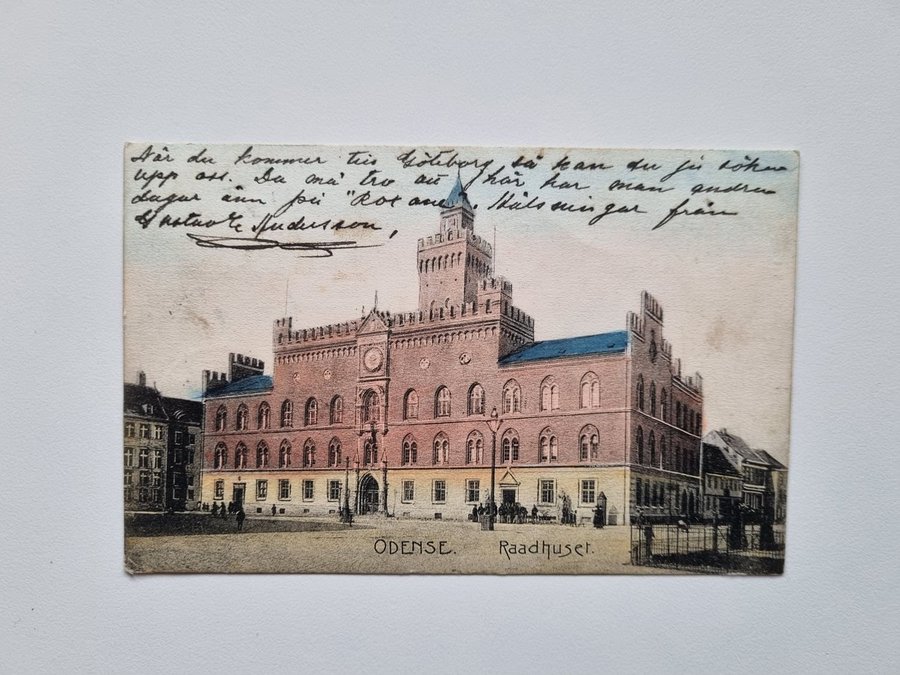 När du kommer till Göteborg så kan du ju söka
upp oss. Du må tro att här har man andra
dagar änn på "Rotane". Hälsningar från
Gustav E Andersson,
ODENSE. Raadhuset.